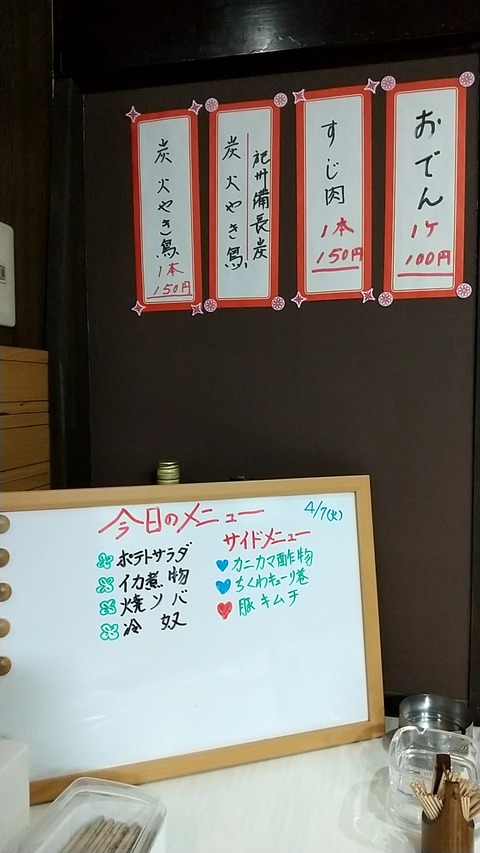 おでん
1ケ
100円
すじ肉
1本
150円
紀州備長炭
炭火やき鳥
炭火やき鳥
1本
150円
今日のメニュー
4/7(火)
ポテトサラダ
イカ煮物
焼ソバ
冷奴
サイドメニュー
カニカマ酢物
ちくわキューリ巻
豚キムチ